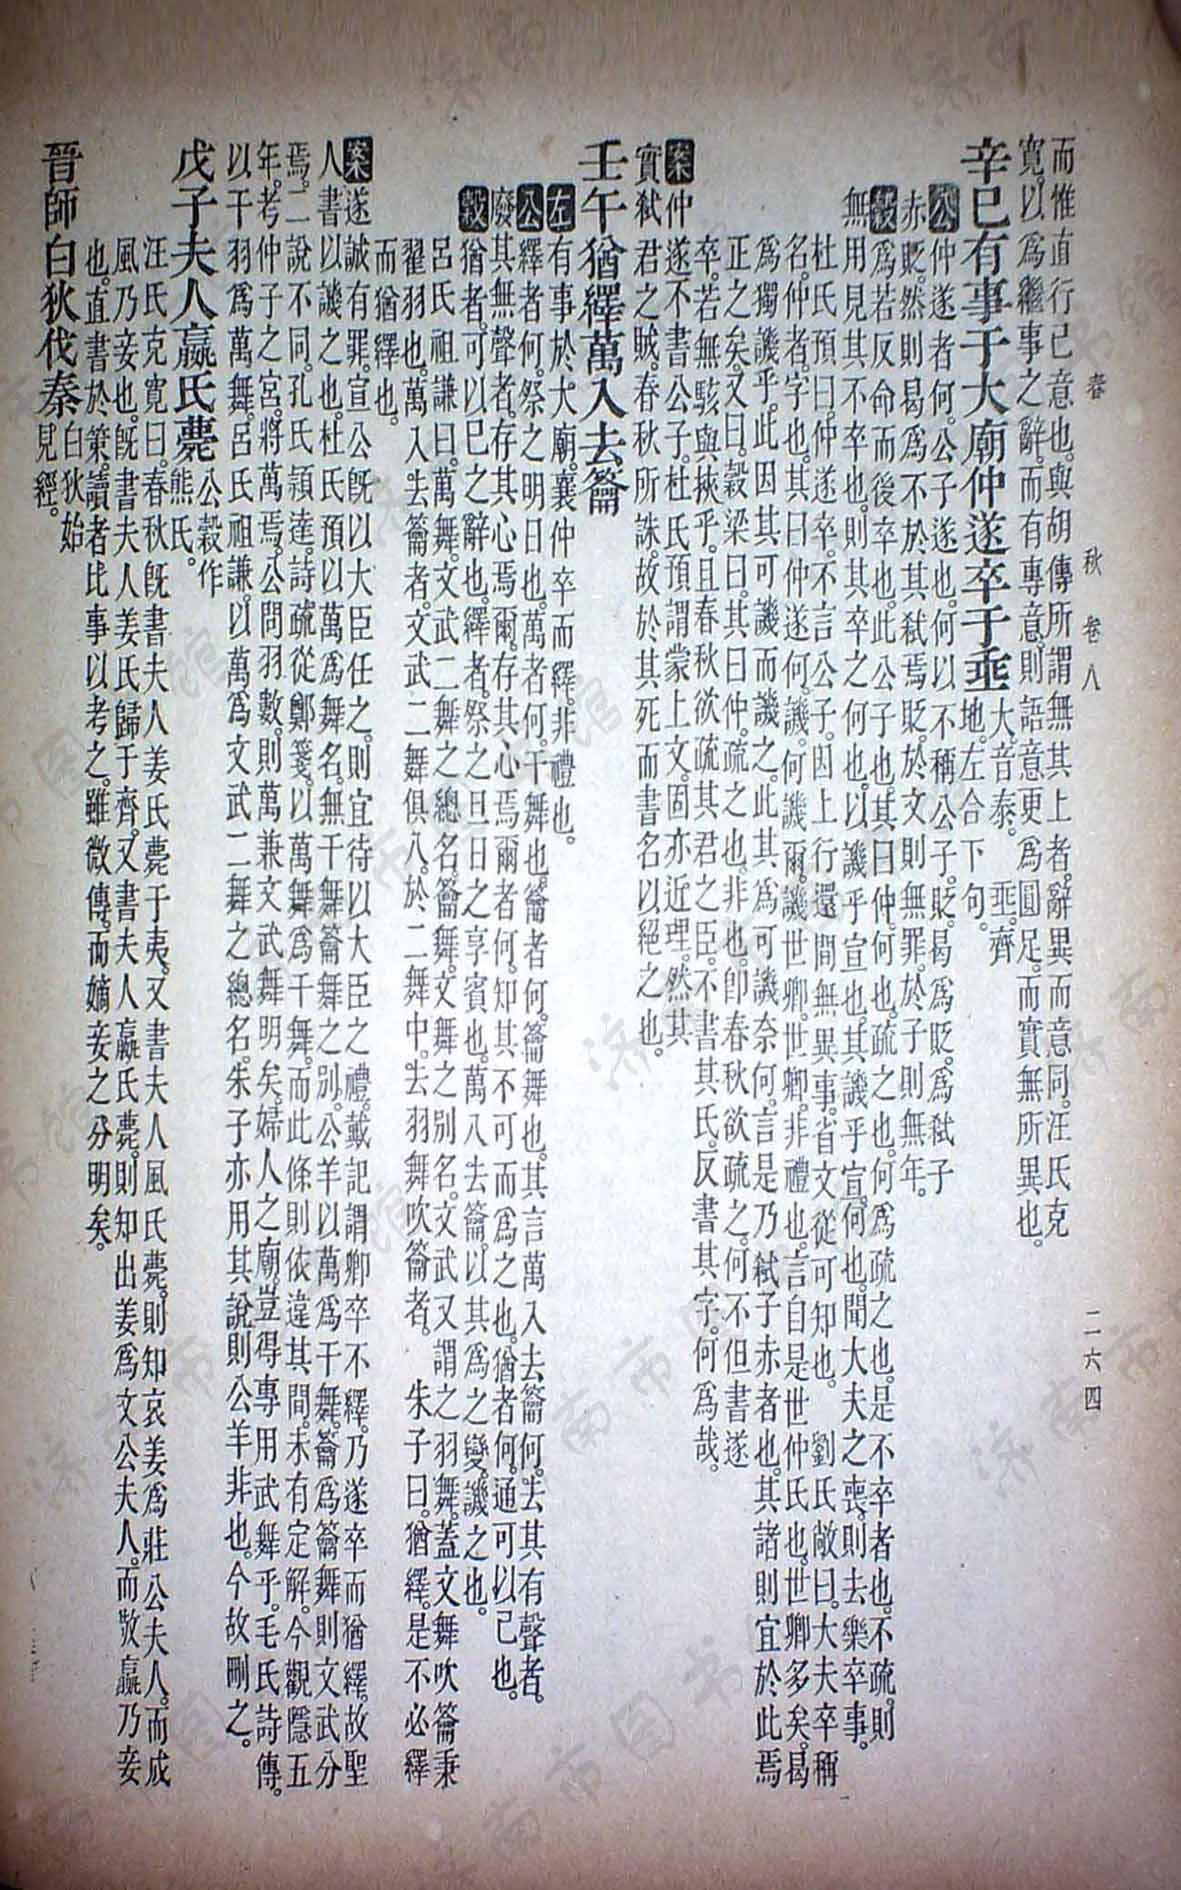 春秋 卷八 二六四
而惟直行己意也。與胡傳所謂無其上者。辭異而意同。汪氏克
寬。以爲繼事之辭。而有專意。則語意更爲圓足。而實無所異也。
辛巳有事于大廟仲遂卒于垂大。音泰。垂。齊
地。左合下句。
公仲遂者何。公子遂也。何以不稱公子。貶。曷爲貶。爲弒子
赤貶。然則曷爲不於其弒焉貶。於文則無罪。於子則無年。
穀爲若反命而後卒也。此公子也。其曰仲。何也。疏之也。何爲疏之也。是不卒者也。不疏。則
無用見其不卒也。則其卒之何也。以譏乎宣也。其譏乎宣。何也。聞大夫之喪。則去樂卒事。
杜氏預曰。仲遂卒。不言公子。因上行還。間無異事。省文從可知也。 劉氏敞曰。大夫卒稱
名。仲者。字也。其曰仲遂何。譏。何譏爾。譏世卿。世卿。非禮也。言自是世仲氏也。世卿多矣。曷
爲獨譏乎。此因其可譏而譏之。此其爲可譏奈何。言是乃弒子赤者也。其諸則宜於此焉
正之矣。又曰。穀梁曰。其曰仲。疏之也。非也。卽春秋欲疏之。何不但書遂
卒。若無駭與挾乎。且春秋欲疏其君之臣。不書其氏。反書其字。何爲哉。
案仲遂不書公子。杜氏預謂蒙上文。固亦近理。然其
實弒君之賊。春秋所誅。故於其死而書名以絕之也。
壬午猶繹萬入去籥
左有事於大廟。襄仲卒而繹。非禮也。
公繹者何。祭之明日也。萬者何。干舞也。籥者何。籥舞也。其言萬入去籥何。去其有聲者。
廢其無聲者。存其心焉爾。存其心焉爾者何。知其不可而爲之也。猶者何。通可以已也。
穀猶者。可以已之辭也。繹者。祭之旦日之享賓也。萬入去籥。以其爲之變。譏之也。
呂氏祖謙曰。萬舞。文武二舞之總名。籥舞。文舞之別名。文武又謂之羽舞。蓋文舞吹籥秉
翟羽也。萬入去籥者。文武二舞俱入。於二舞中。去羽舞吹籥者。 朱子曰。猶繹。是不必繹
而猶繹也。
案遂誠有罪。宣公旣以大臣任之。則宜待以大臣之禮。戴記謂卿卒不繹。乃遂卒而猶繹。故聖
人書以譏之也。杜氏預以萬爲舞名。無干舞籥舞之別。公羊以萬爲干舞。籥爲籥舞。則文武分
焉。二說不同。孔氏穎達。詩疏從鄭箋。以萬舞爲干舞。而此條則依違其間。未有定解。今觀隱五
年。考仲子之宮。將萬焉。公問羽數。則萬兼文武舞明矣。婦人之廟。豈得專用武舞乎。毛氏詩傳。
以干羽爲萬舞。呂氏祖謙。以萬爲文武二舞之總名。朱子亦用其說。則公羊非也。今故刪之。
戊子夫人嬴氏薨公穀作
熊氏。
汪氏克寬曰。春秋旣書夫人姜氏薨于夷。又書夫人風氏薨。則知哀姜爲莊公夫人。而成
風乃妾也。旣書夫人姜氏歸于齊。又書夫人嬴氏薨。則知出姜爲文公夫人。而敬嬴乃妾
也。直書於策。讀者比事以考之。雖微傳。而嫡妾之分明矣。
晉師白狄伐秦白狄始
見經。